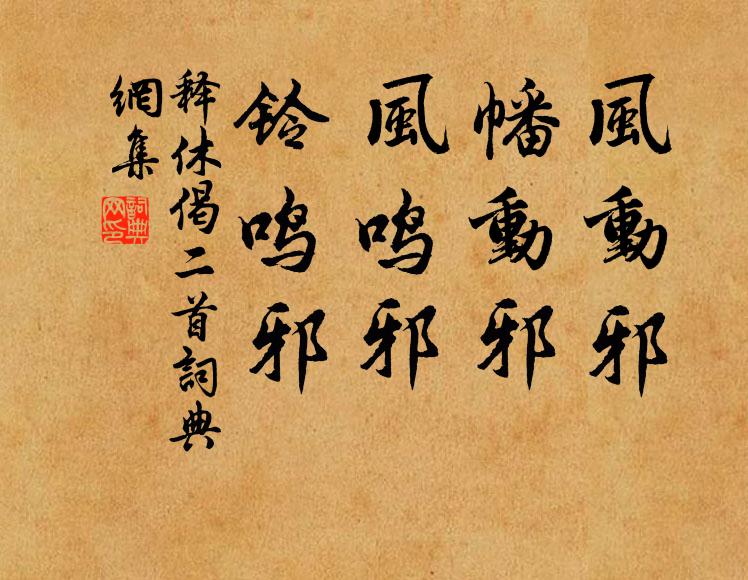 風動邪
幡動邪
風鸣邪
鈴鸣邪
释休偈二首詞典
網集
詞典
网印